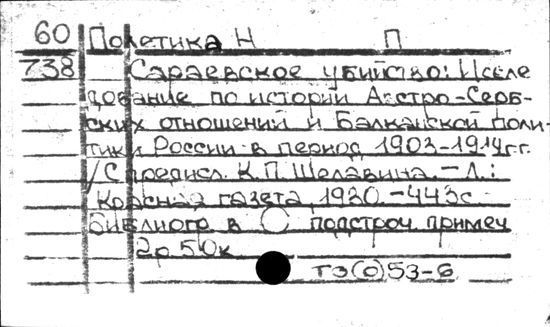 60 Полетика Н П
738 Сараевское убийство: Иссле
дование по истории Австро-Серб-
ских отношений и Балканской поли-
тики России в период 1903-1914г.г.
/С предисл. К.П. Шелавина. - Л.:
Красная газета, 1930. - 443с
Библиогр в подстроч примеч
2р 50к
тэ(о)53-6